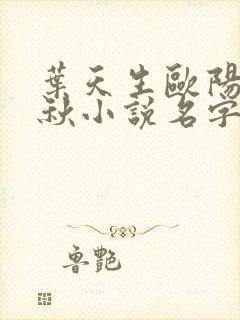 葉天生歐陽
秋小說名字
魯艷